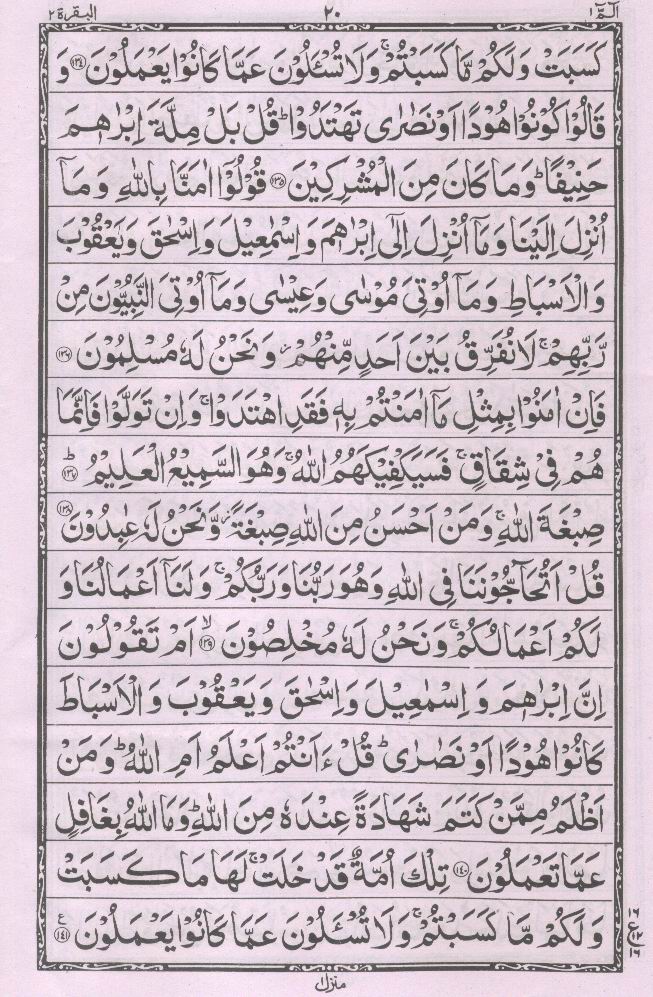 الٓمّٓ ١ ٢٠ البقرة ٢
كَسَبَتْ وَلَكُمْ مَّا كَسَبْتُمْ ۚ وَلَا تُسْـَٔلُوْنَ عَمَّا كَانُوْا يَعْمَلُوْنَ ﴿۱۳۴﴾ وَ
قَالُوْا كُوْنُوْا هُوْدًا اَوْ نَصٰرٰى تَهْتَدُوْا ؕ قُلْ بَلْ مِلَّةَ اِبْرٰهٖمَ
حَنِيْفًا ؕ وَمَا كَانَ مِنَ الْمُشْرِكِيْنَ ﴿۱۳۵﴾ قُوْلُوْۤا اٰمَنَّا بِاللّٰهِ وَمَاۤ
اُنْزِلَ اِلَيْنَا وَمَاۤ اُنْزِلَ اِلٰۤى اِبْرٰهٖمَ وَ اِسْمٰعِيْلَ وَ اِسْحٰقَ وَ يَعْقُوْبَ
وَ الْاَسْبَاطِ وَمَاۤ اُوْتِيَ مُوْسٰى وَعِيْسٰى وَمَاۤ اُوْتِيَ النَّبِيُّوْنَ مِنْ
رَّبِّهِمْ ۚ لَا نُفَرِّقُ بَيْنَ اَحَدٍ مِّنْهُمْ ۖ وَنَحْنُ لَهٗ مُسْلِمُوْنَ ﴿۱۳۶﴾
فَاِنْ اٰمَنُوْا بِمِثْلِ مَاۤ اٰمَنْتُمْ بِهٖ فَقَدِ اهْتَدَوْا ۚ وَاِنْ تَوَلَّوْا فَاِنَّمَا
هُمْ فِيْ شِقَاقٍ ۚ فَسَيَكْفِيْكَهُمُ اللّٰهُ ۚ وَهُوَ السَّمِيْعُ الْعَلِيْمُ ؕ ﴿۱۳۷﴾
صِبْغَةَ اللّٰهِ ۚ وَمَنْ اَحْسَنُ مِنَ اللّٰهِ صِبْغَةً ۫ وَّنَحْنُ لَهٗ عٰبِدُوْنَ ﴿۱۳۸﴾
قُلْ اَتُحَآجُّوْنَنَا فِي اللّٰهِ وَهُوَ رَبُّنَا وَرَبُّكُمْ ۚ وَلَنَاۤ اَعْمَالُنَا وَ
لَكُمْ اَعْمَالُكُمْ ۚ وَنَحْنُ لَهٗ مُخْلِصُوْنَ ۙ ﴿۱۳۹﴾ اَمْ تَقُوْلُوْنَ
اِنَّ اِبْرٰهٖمَ وَ اِسْمٰعِيْلَ وَ اِسْحٰقَ وَ يَعْقُوْبَ وَ الْاَسْبَاطَ
كَانُوْا هُوْدًا اَوْ نَصٰرٰى ؕ قُلْ ءَاَنْتُمْ اَعْلَمُ اَمِ اللّٰهُ ؕ وَمَنْ
اَظْلَمُ مِمَّنْ كَتَمَ شَهَادَةً عِنْدَهٗ مِنَ اللّٰهِ ؕ وَمَا اللّٰهُ بِغَافِلٍ
عَمَّا تَعْمَلُوْنَ ﴿۱۴۰﴾ تِلْكَ اُمَّةٌ قَدْ خَلَتْ ۚ لَهَا مَا كَسَبَتْ
وَلَكُمْ مَّا كَسَبْتُمْ ۚ وَلَا تُسْـَٔلُوْنَ عَمَّا كَانُوْا يَعْمَلُوْنَ ﴿۱۴۱﴾ ع
۱۶
ع ۱۲
۱۶
منزل ١